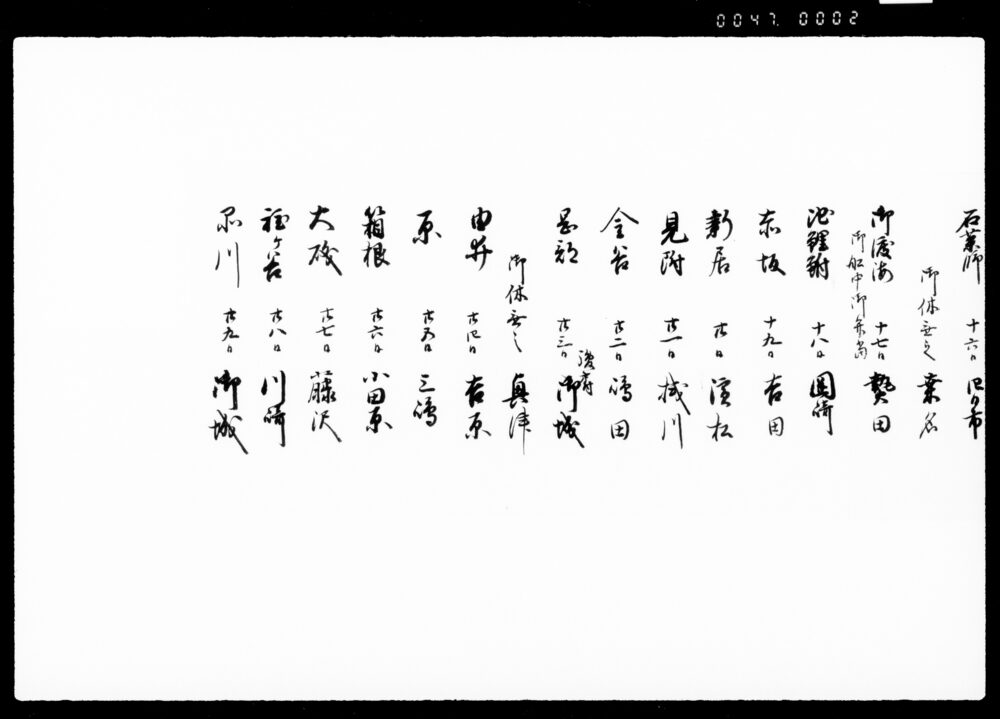 0047. 0002
石薬師 十六日 四日市
御休無之 桑名
御渡海 十七日 熱田
御船中御弁当
池鯉鮒 十八日 岡崎
赤坂 十九日 吉田
新居 廿日 濱松
見附 廿一日 掛川
金谷 廿二日 嶋田
岡部 廿三日 駿府 御城
御休無之 奥津
由井 廿四日 吉原
原 廿五日 三嶋
箱根 廿六日 小田原
大磯 廿七日 藤沢
程ヶ谷 廿八日 川崎
品川 廿九日 御城